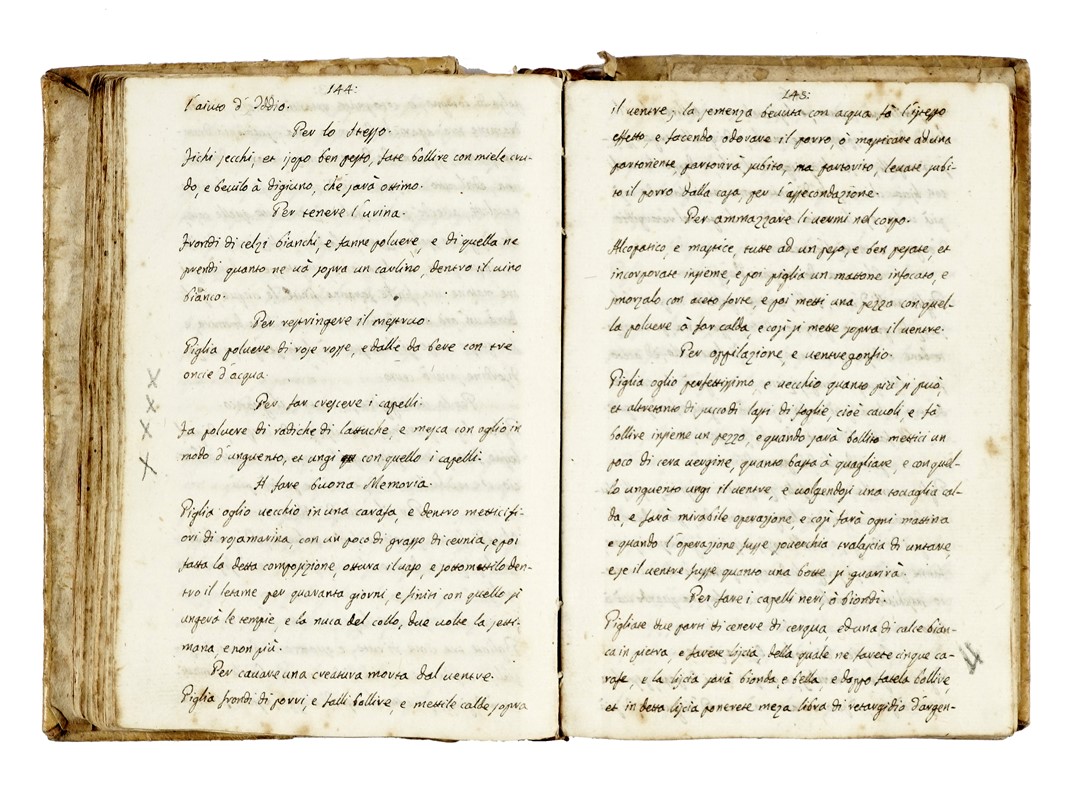 144:
l'aiuto d'Iddio.
Per lo stesso.
Fichi secchi, et isopo ben pesto, fate bollire con miele cru-
do, e bevilo à digiuno, che sarà ottimo.
Per tenere l'urina.
Frondi di celzi bianchi, e fanne polvere, e di quella ne
prendi quanto ne và sopra un carlino, dentro il vino
bianco.
Per restringere il mestruo.
Piglia polvere di rose rosse, e dalle da bere con tre
oncie d'acqua.
Per far crescere i capelli.
Fa polvere di radiche di lattuche, e mesca con oglio in
modo d'unguento, et ungi con quello i capelli.
A fare buona Memoria.
Piglia oglio vecchio in una carafa, e dentro mettici fi-
ori di rosamarina, con un poco di grasso di cernia, e poi
fatta la detta compositione, ottura il vaso, e sottomettilo den-
tro il letame per quaranta giorni, e finiti con quello si
ungerà le tempie, e la nuca del collo, due volte la setti-
mana, e non più.
Per cavare una creatura morta dal ventre.
Piglia frondi di porri, e falli bollire, e mettile calde sopra
145:
il ventre, la semenza bevuta con acqua fà l'istesso
effetto, e facendo odorare il porro, ò masticare ad una
partoriente, partorirà subito, ma partorito, levate subi-
to il porro dalla casa, per l'assecondazione.
Per ammazzare li vermi nel corpo.
Alcopatico, e mastice, tutte ad un peso, e ben pesate, et
incorporate insieme, e poi piglia un mattone infocato, e
smorzalo con aceto forte, e poi metti una pezza con quel-
la polvere à far calda, e così si mette sopra il ventre.
Per oppilazione, e ventre gonfio.
Piglia oglio perfettissimo, e vecchio quanto più si può,
et altretanto di succo di lassi di foglie, cioè cauoli, e fà
bollire insieme un pezzo, e quando sarà bollito mettici un
poco di cera vergine, quanto basta à quagliare, e con quel-
lo unguento ungi il ventre, e volgendosi una tovaglia cal-
da, e farà mirabile operazione, e così farà ogni mattina
e quando l'operazione fusse soverchia tralascia di untare
e se il ventre fusse quanto una botte si guarirà.
Per fare i capelli neri, ò biondi.
Pigliate due parti di cenere di cerqua, ed una di calce bian-
ca in pietra, e farete liscia, della quale ne farete cinque ca-
rafe, e la liscia sarà bionda, e bella, e doppo fatela bollire,
et in detta liscia ponerete meza libra di retargidio d'argen-